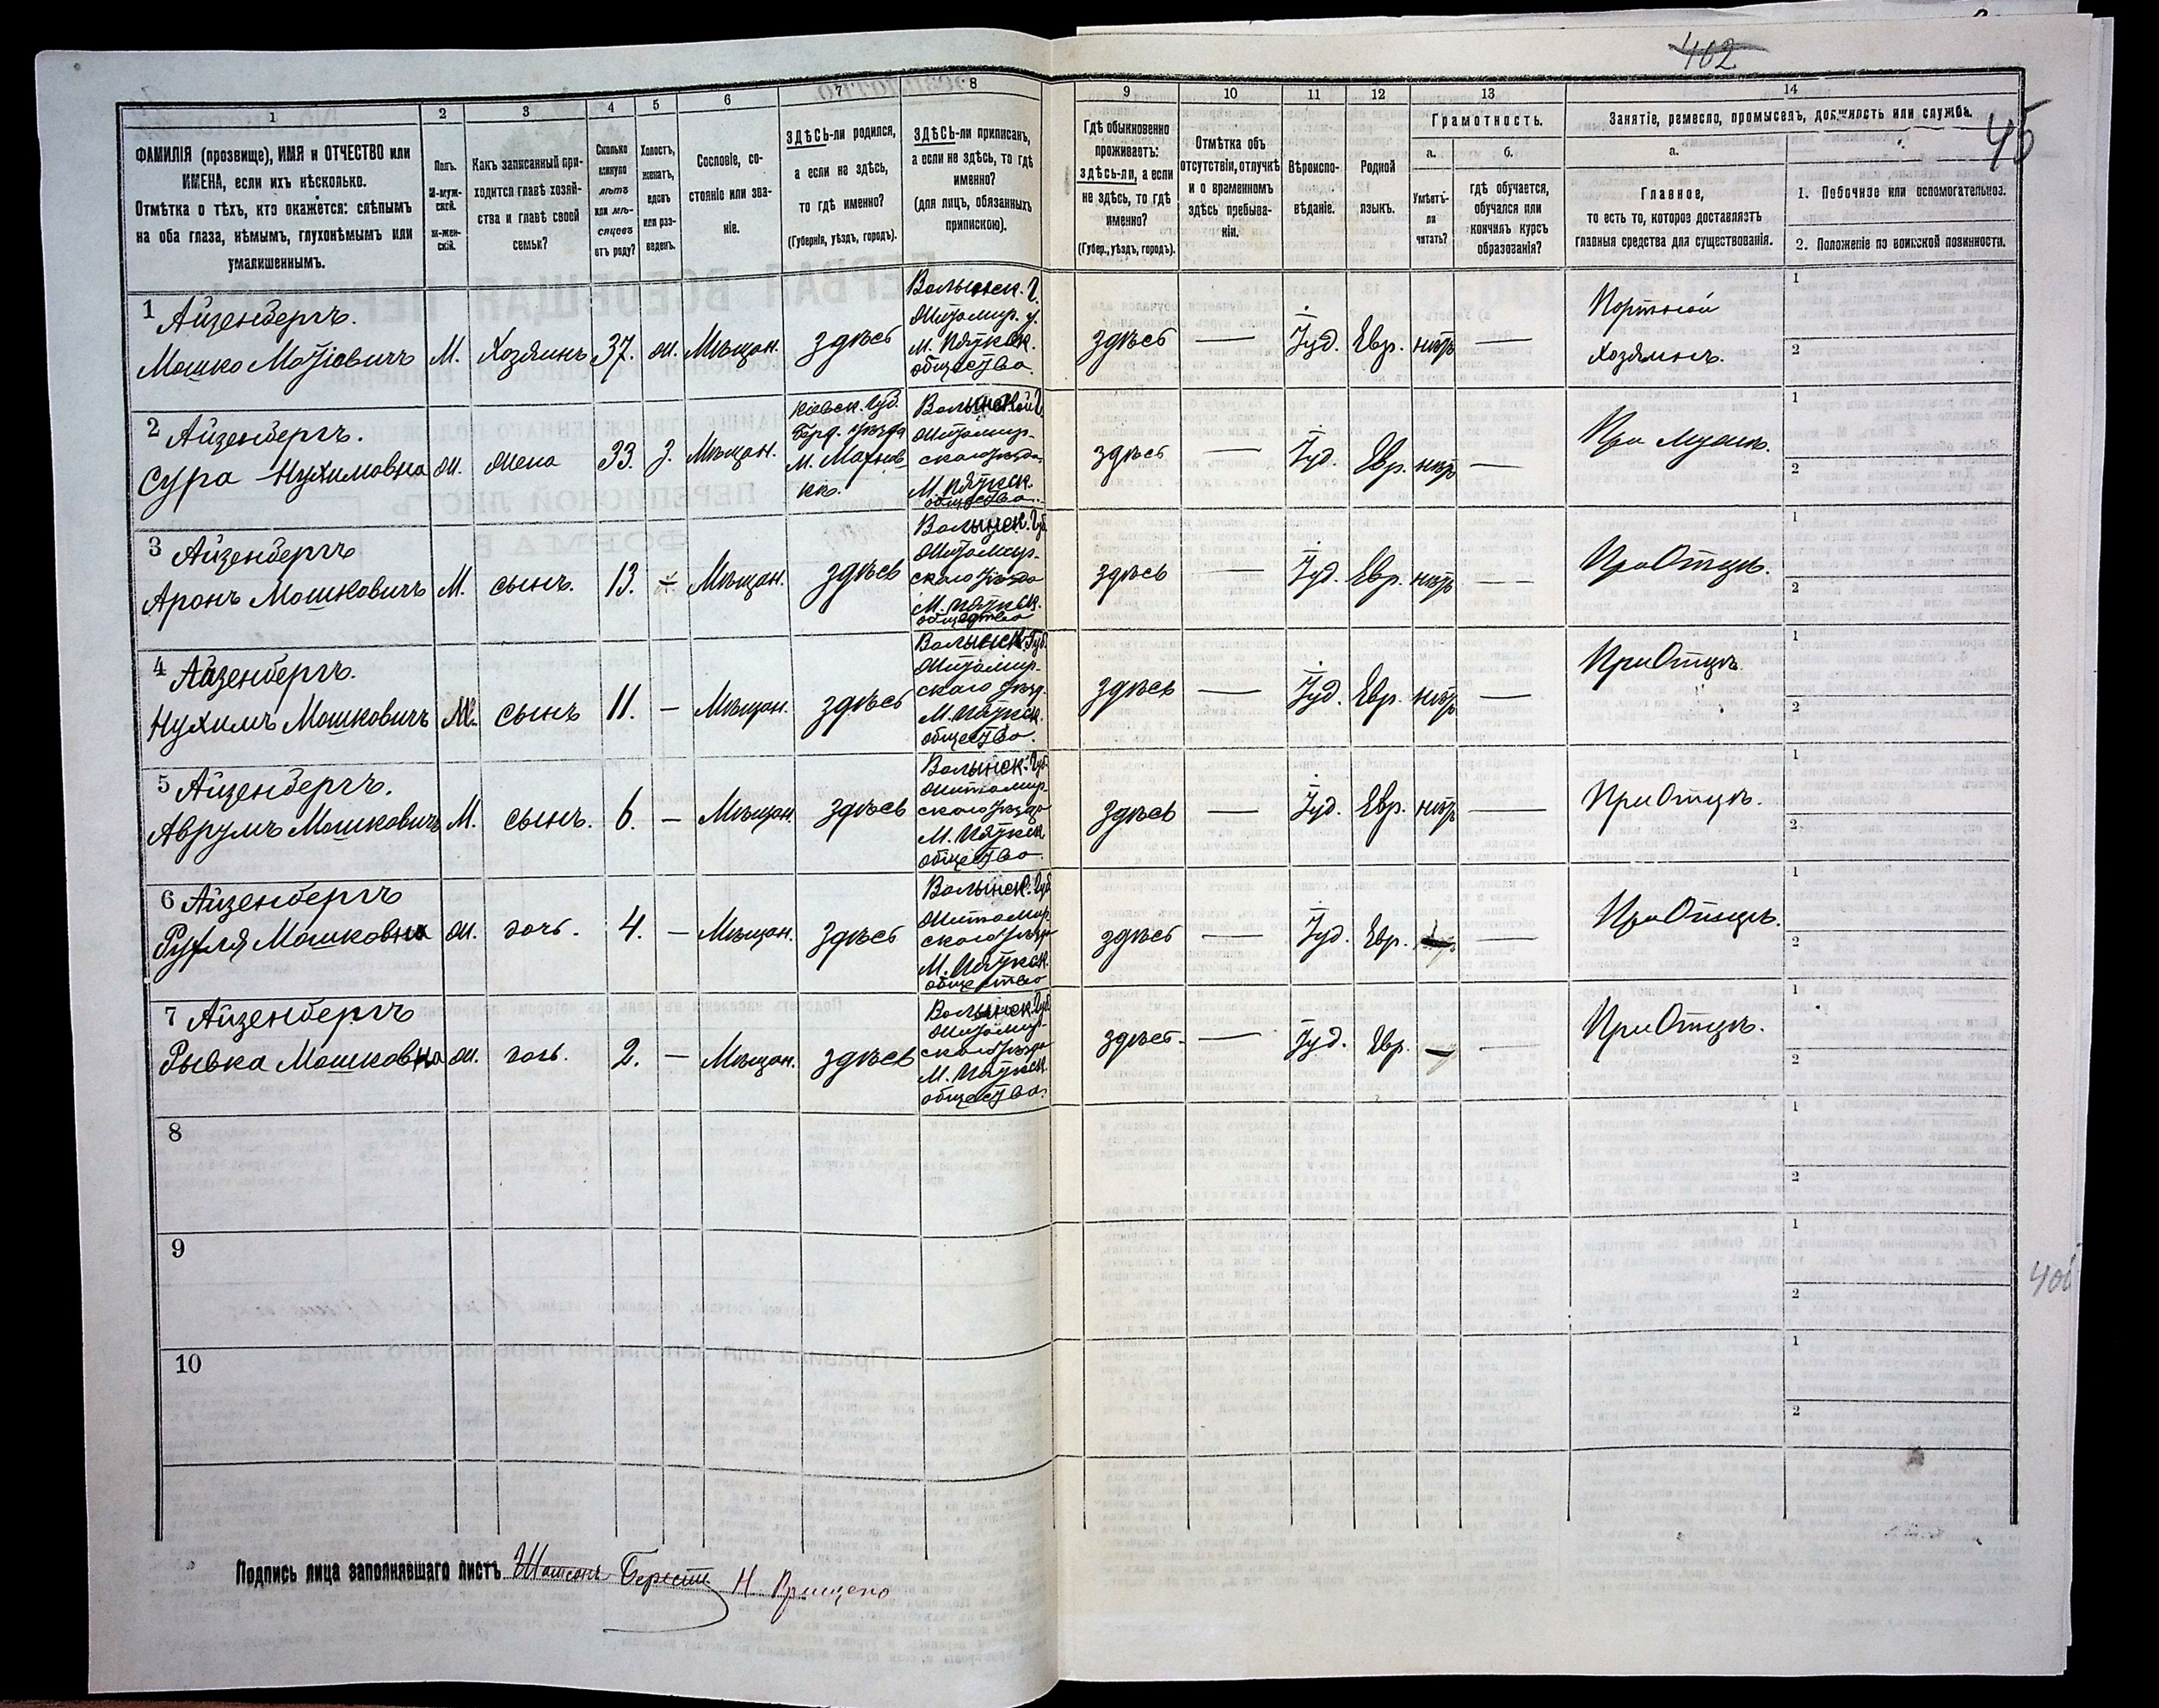 402
45
1
2
3
4
5
6
7
8
9
10
11
12
13
14
ФАМИЛІЯ (прозвище), ИМЯ и ОТЧЕСТВО или
ИМЕНА, если ихъ нѣсколько.
Отмѣтка о тѣхъ, кто окажется: слѣпымъ
на оба глаза, нѣмымъ, глухонѣмымъ или
умалишеннымъ.
Полъ.
М-муж-
ской.
Ж-жен-
скій.
Какъ записанный при-
ходится главѣ хозяй-
ства и главѣ своей
семьи?
Сколько
минуло
лѣтъ
или мѣ-
сяцевъ
отъ роду?
Холостъ,
женатъ,
вдовъ
или раз-
веденъ.
Сословіе, со-
стояніе или зва-
ніе.
ЗДѢСЬ-ли родился,
а если не здѣсь,
то гдѣ именно?
(Губернія, уѣздъ, городъ).
ЗДѢСЬ-ли приписанъ,
а если не здѣсь, то гдѣ
именно?
(для лицъ, обязанныхъ
припискою).
Гдѣ обыкновенно
проживаетъ:
здѣсь-ли, а если
не здѣсь, то гдѣ
именно?
(Губер., уѣздъ, городъ).
Отмѣтка объ
отсутствіи, отлучкѣ
и о временномъ
здѣсь пребыва-
ніи.
Вѣроиспо-
вѣданіе.
Родной
языкъ.
Грамотность.
а.
Умѣетъ-
ли
читать?
б.
гдѣ обучается,
обучался или
кончилъ курсъ
образованія?
Занятіе, ремесло, промыселъ, должность или служба.
а.
Главное,
то есть то, которое доставляетъ
главныя средства для существованія.
1. Побочное или вспомогательное.
2. Положеніе по воинской повинности.
1 Айзенбергъ.
Мошко М. Хозяинъ 37. ж. Мѣщан. здѣсь
Волынск. Г.
Житомир. у.
М. Пятк
общества.
здѣсь — Іуд. Евр. нѣтъ —
Портной
Хозяинъ.
1
2
2 Айзенбергъ.
Сура Нухимовна ж. жена 33. З. Мѣщан.
Кіевск. Губ.
Берд. уѣзда
М. Махнов
ка.
Волынской Г
Житомир-
скаго уѣзда
М. Пятк
общества.
здѣсь — Іуд. Евр. нѣтъ —
При мужѣ.
1
2
3 Айзенбергъ
Аронъ Мошковичъ М. сынъ. 13. Мѣщан. здѣсь
Волынск. Губ.
Житомир-
скаго уѣзда
М. Пятк
общества
здѣсь — Іуд. Евр. нѣтъ —
При Отцѣ.
1
2
4 Айзенбергъ.
Нухимъ Мошковичъ М. сынъ 11. — Мѣщан. здѣсь
Волынск. Губ.
Житомир-
скаго уѣзд.
М. Пятк
общества.
здѣсь — Іуд. Евр. нѣтъ —
При Отцѣ
1
2
5 Айзенбергъ.
Аврумъ Мошковичъ М. сынъ. 6. — Мѣщан. здѣсь
Волынск. Губ.
Житомир-
скаго уѣзда
М. Пятк
общества.
здѣсь — Іуд. Евр. нѣтъ —
При Отцѣ.
1
2
6 Айзенбергъ
Мошковна ж. дочь. 4. — Мѣщан. здѣсь
Волынск. Губ
Житомир
скаго уѣзда
М. Пятк
общества
здѣсь — Іуд. Евр. —
При Отцѣ.
1
2
7 Айзенбергъ
Рывка Мошковна ж. дочь. 2. — Мѣщан. здѣсь
Волынск. Губ
Житомир-
скаго уѣзда
М. Пятк
общества.
здѣсь. — Іуд. Евр. — —
При Отцѣ.
1
2
8
1
2
9
1
2
10
1
2
Подпись лица заполнявшаго листъ